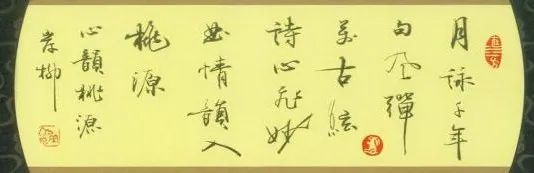 月詠千年
句風彈
萬古絃
詩心飛妙
曲情韻入
桃源
心韻桃源
岸柳